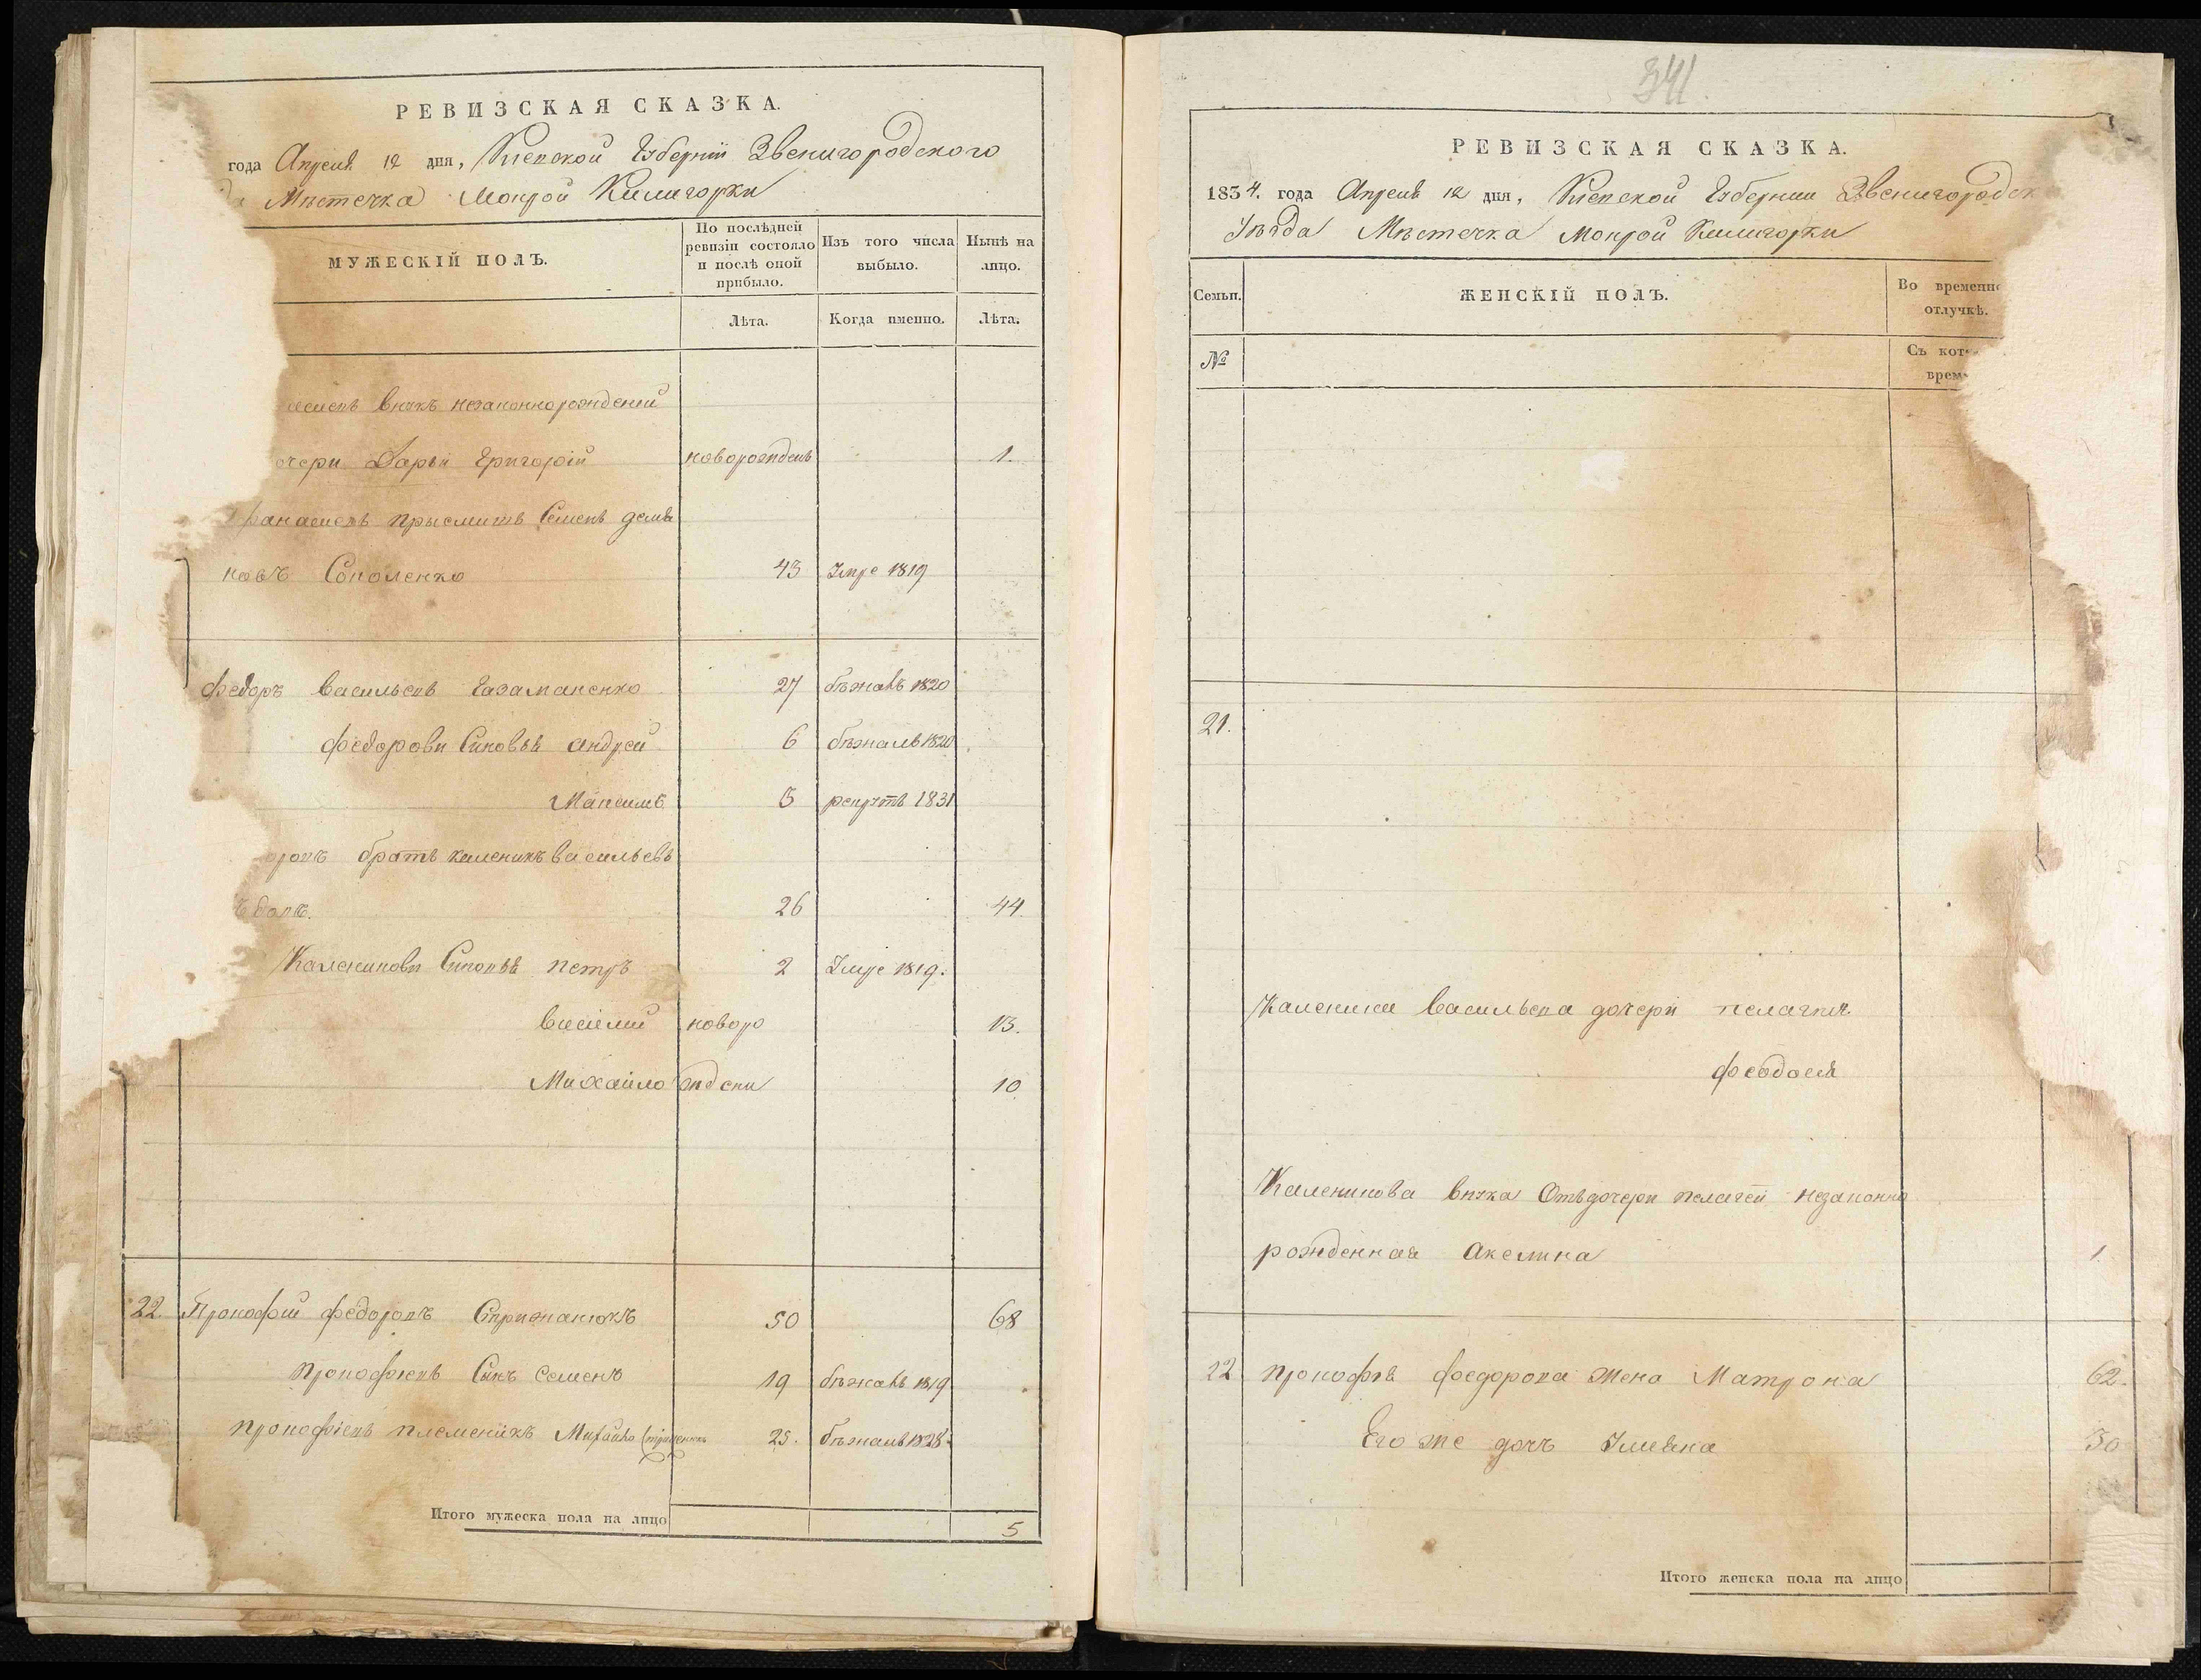 РЕВИЗСКАЯ СКАЗКА.
года Апреля 12 дня, Киевской Губернии Звенигородского
Местечка Мокрой Калигорки
МУЖЕСКІЙ ПОЛЪ.
По послѣдней ревизіи состояло и послѣ оной прибыло.
Изъ того числа выбыло.
Нынѣ на лицо.
Лѣта.
Когда именно.
Лѣта.
внукъ незаконнорождений
Дарьи Григорій новорожденъ 1.
Семенъ Демья
новъ Соколенко 43 Умре 1819
Федоръ Васильевъ 27 бѣжалъ 1820
Федорови Синовья андрей 6 бѣжалъ 1820
Максимъ 5 рекрутъ 1831
братъ каленикъ васильевъ
26 44
Калениkови Синовья петръ 2 Умре 1819.
василий новоро 13.
Михайло ждени 10
22. Прокофий федоровъ 50 68
прокофіевъ Сынъ Семенъ 19 бѣжалъ 1819
прокофіевъ племеникъ Михайло 25. бѣжалъ 1828
Итого мужеска пола на лицо 5
341.
РЕВИЗСКАЯ СКАЗКА.
1834. года Апреля 12 дня, Киевской Губернии Звенигородск
Уѣзда Мѣстечка Мокрой Калигорки
Семьи.
ЖЕНСКІЙ ПОЛЪ.
Во временно
отлучкѣ.
№
Съ кот
врем
21.
Каленика васильева дочери пелагия
феодосия
Каленикова внука Отъ дочери пелагеи незаконно
рожденная Акелина 1.
22 прокофия федорова жена Матрона 62.
Его же дочъ Улияна 30
Итого женска пола на лицо